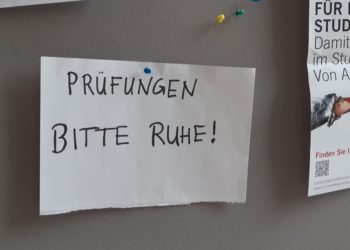 PRÜFUNGEN
BITTE RUHE!
FÜR
STUD
Damit
im Stu
Von A
Finden Sie